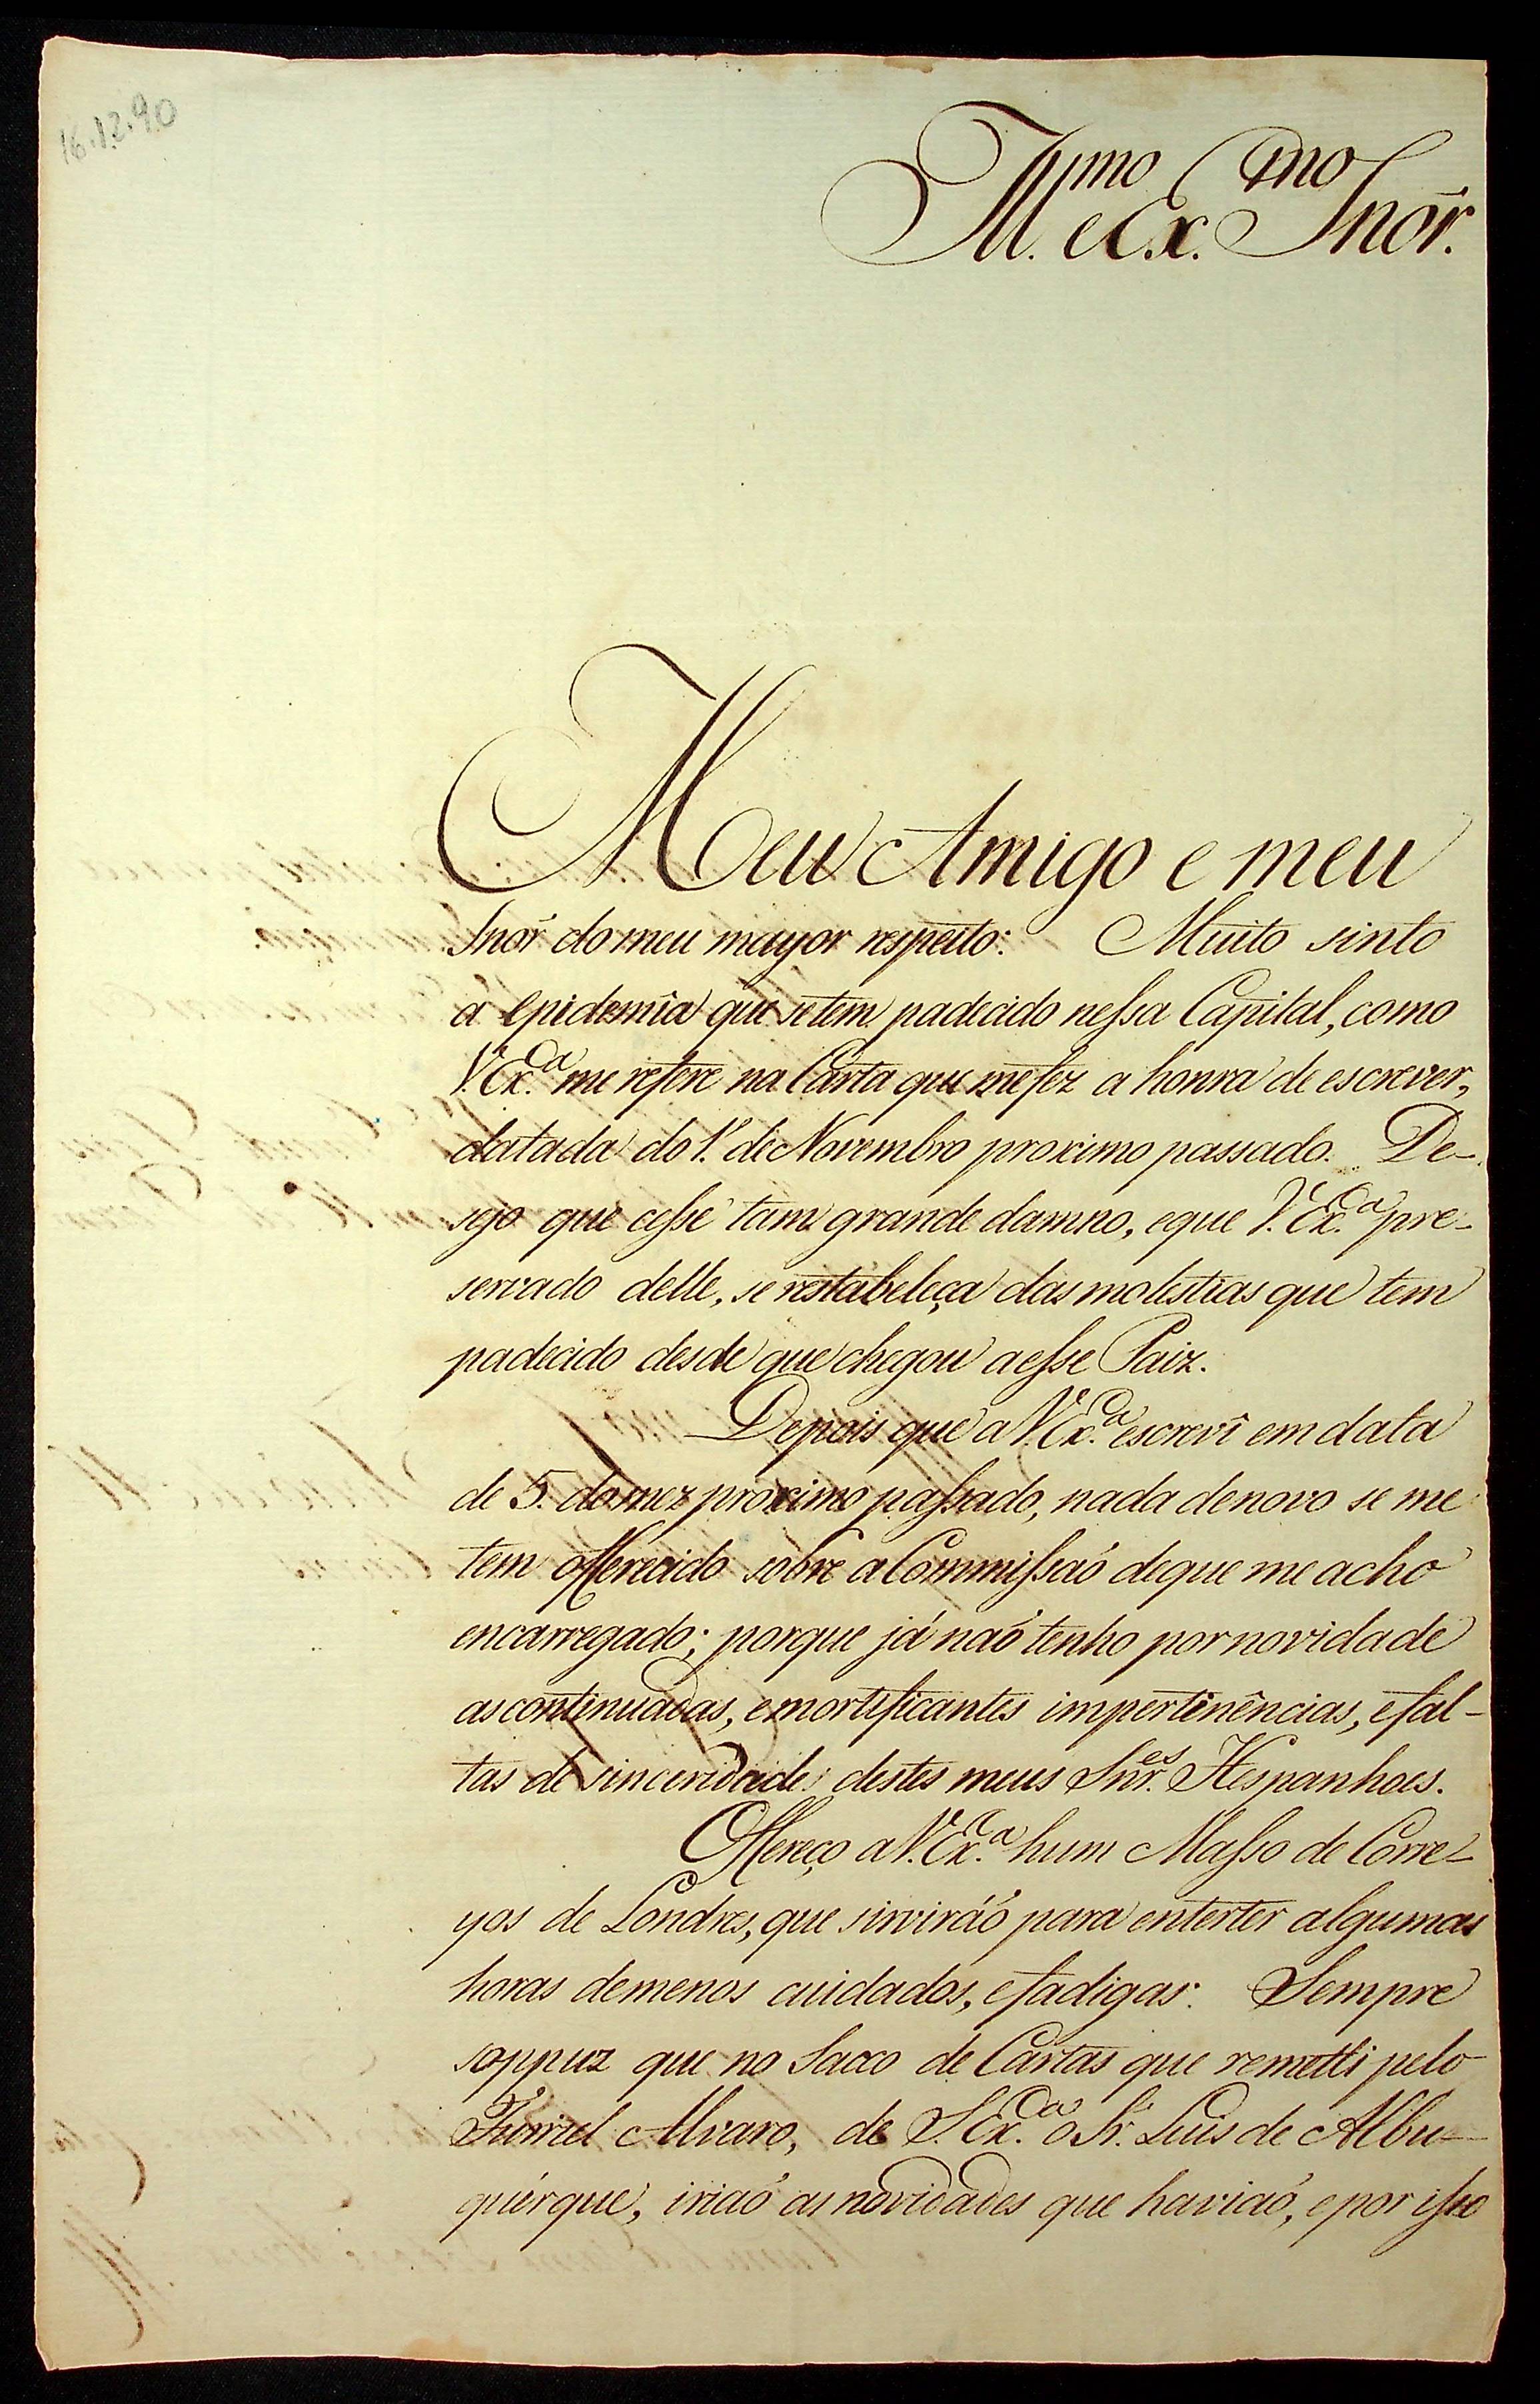 16.12.90
Ill.mo e Ex.mo Snõr.
Meu Amigo e meu
Snõr do meu mayor respeito: Muito sinto
a Epidemîa que se tem padecido nessa Capital, como
V. Ex.ca me refere na Carta que me fez a honra de escrever,
datada do 1.º de Novembro proximo passado. De-
sejo que cesse tam grande damno, e que V. Ex.ca pre-
servado delle, se restabeleça das molestias que tem
padecido desde que chegou a esse Paiz.
Depois que a V. Ex.ca escrevî em data
de 5. do mez proximo passado, nada de novo se me
tem offerecido sobre a Commissaó de que me acho
encarregado; porque já naó tenho por novidade
as continuadas, e mortificantes impertinências, e fal-
tas de sinceridade destes meus Snr.es Hespanhoes.
Offereço a V. Ex.ca hum Masso de Corre-
yos de Londres, que serviráó para enterter algumas
horas de menos cuidados, e fadigas: Sempre
soppuz que no Sacco de Cartas que remetti pelo
Furriel Alvaro, de S. Ex.ca o Sr. Luis de Albu-
quérque, iriaó as novidades que haviaó, e por isso